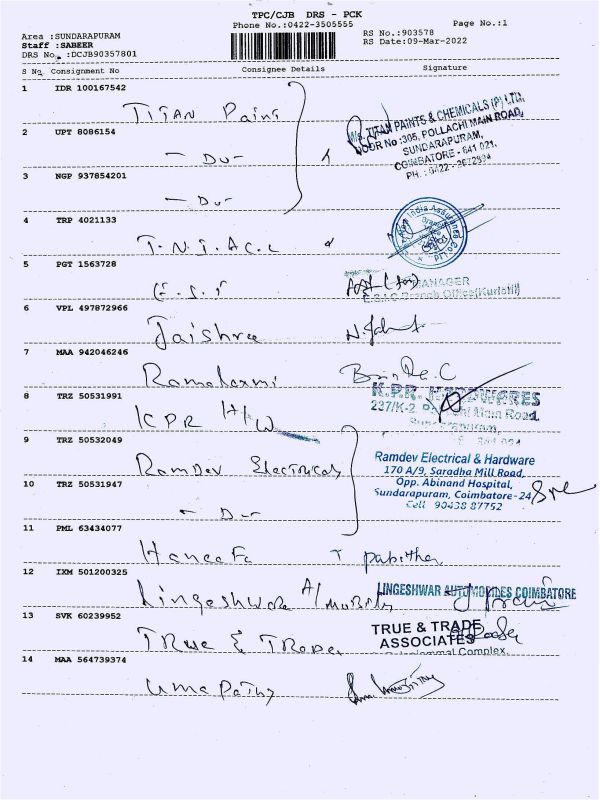 TPC/CJB DRS - PCK
Phone No.:0422-3505555
Page No.:1
Area :SUNDARAPURAM
Staff :SABEER
DRS No. :DCJB90357801
RS No.:903578
RS Date:09-Mar-2022
S No Consignment No Consignee Details Signature
1 IDR 100167542
TITAN Paint
M/s. TITAN PAINTS & CHEMICALS (P) LTD
DOOR No :305, POLLACHI MAIN ROAD,
SUNDARAPURAM,
COIMBATORE - 641 021.
2 UPT 8086154
- Do -
3 NGP 937854201
- Do -
4 TRP 4021133
T.N.I.A.C.L
India Assurance
5 PGT 1563728
E.S.I
MANAGER
E.S.I.C Branch Office(Kurichi)
6 VPL 497872966
Jaishree
7 MAA 942046246
Ramalaxmi
8 TRZ 50531991
KPR H/W
K.P.R. HARDWARES
237/K-2 Main Road
9 TRZ 50532049
Ramdev Electricals
Ramdev Electrical & Hardware
170 A/9, Saradha Mill Road,
Opp. Abinand Hospital,
Sundarapuram, Coimbatore-24
Cell 90438 87752
10 TRZ 50531947
- Do -
11 PML 63434077
Haneefa
12 IXM 501200325
Lingeshwara A/Mobiles
LINGESHWAR AUTOMOBILES COIMBATORE
13 SVK 60239952
True & Trade
TRUE & TRADE
ASSOCIATES
Complex,
14 MAA 564739374
Uma Paints